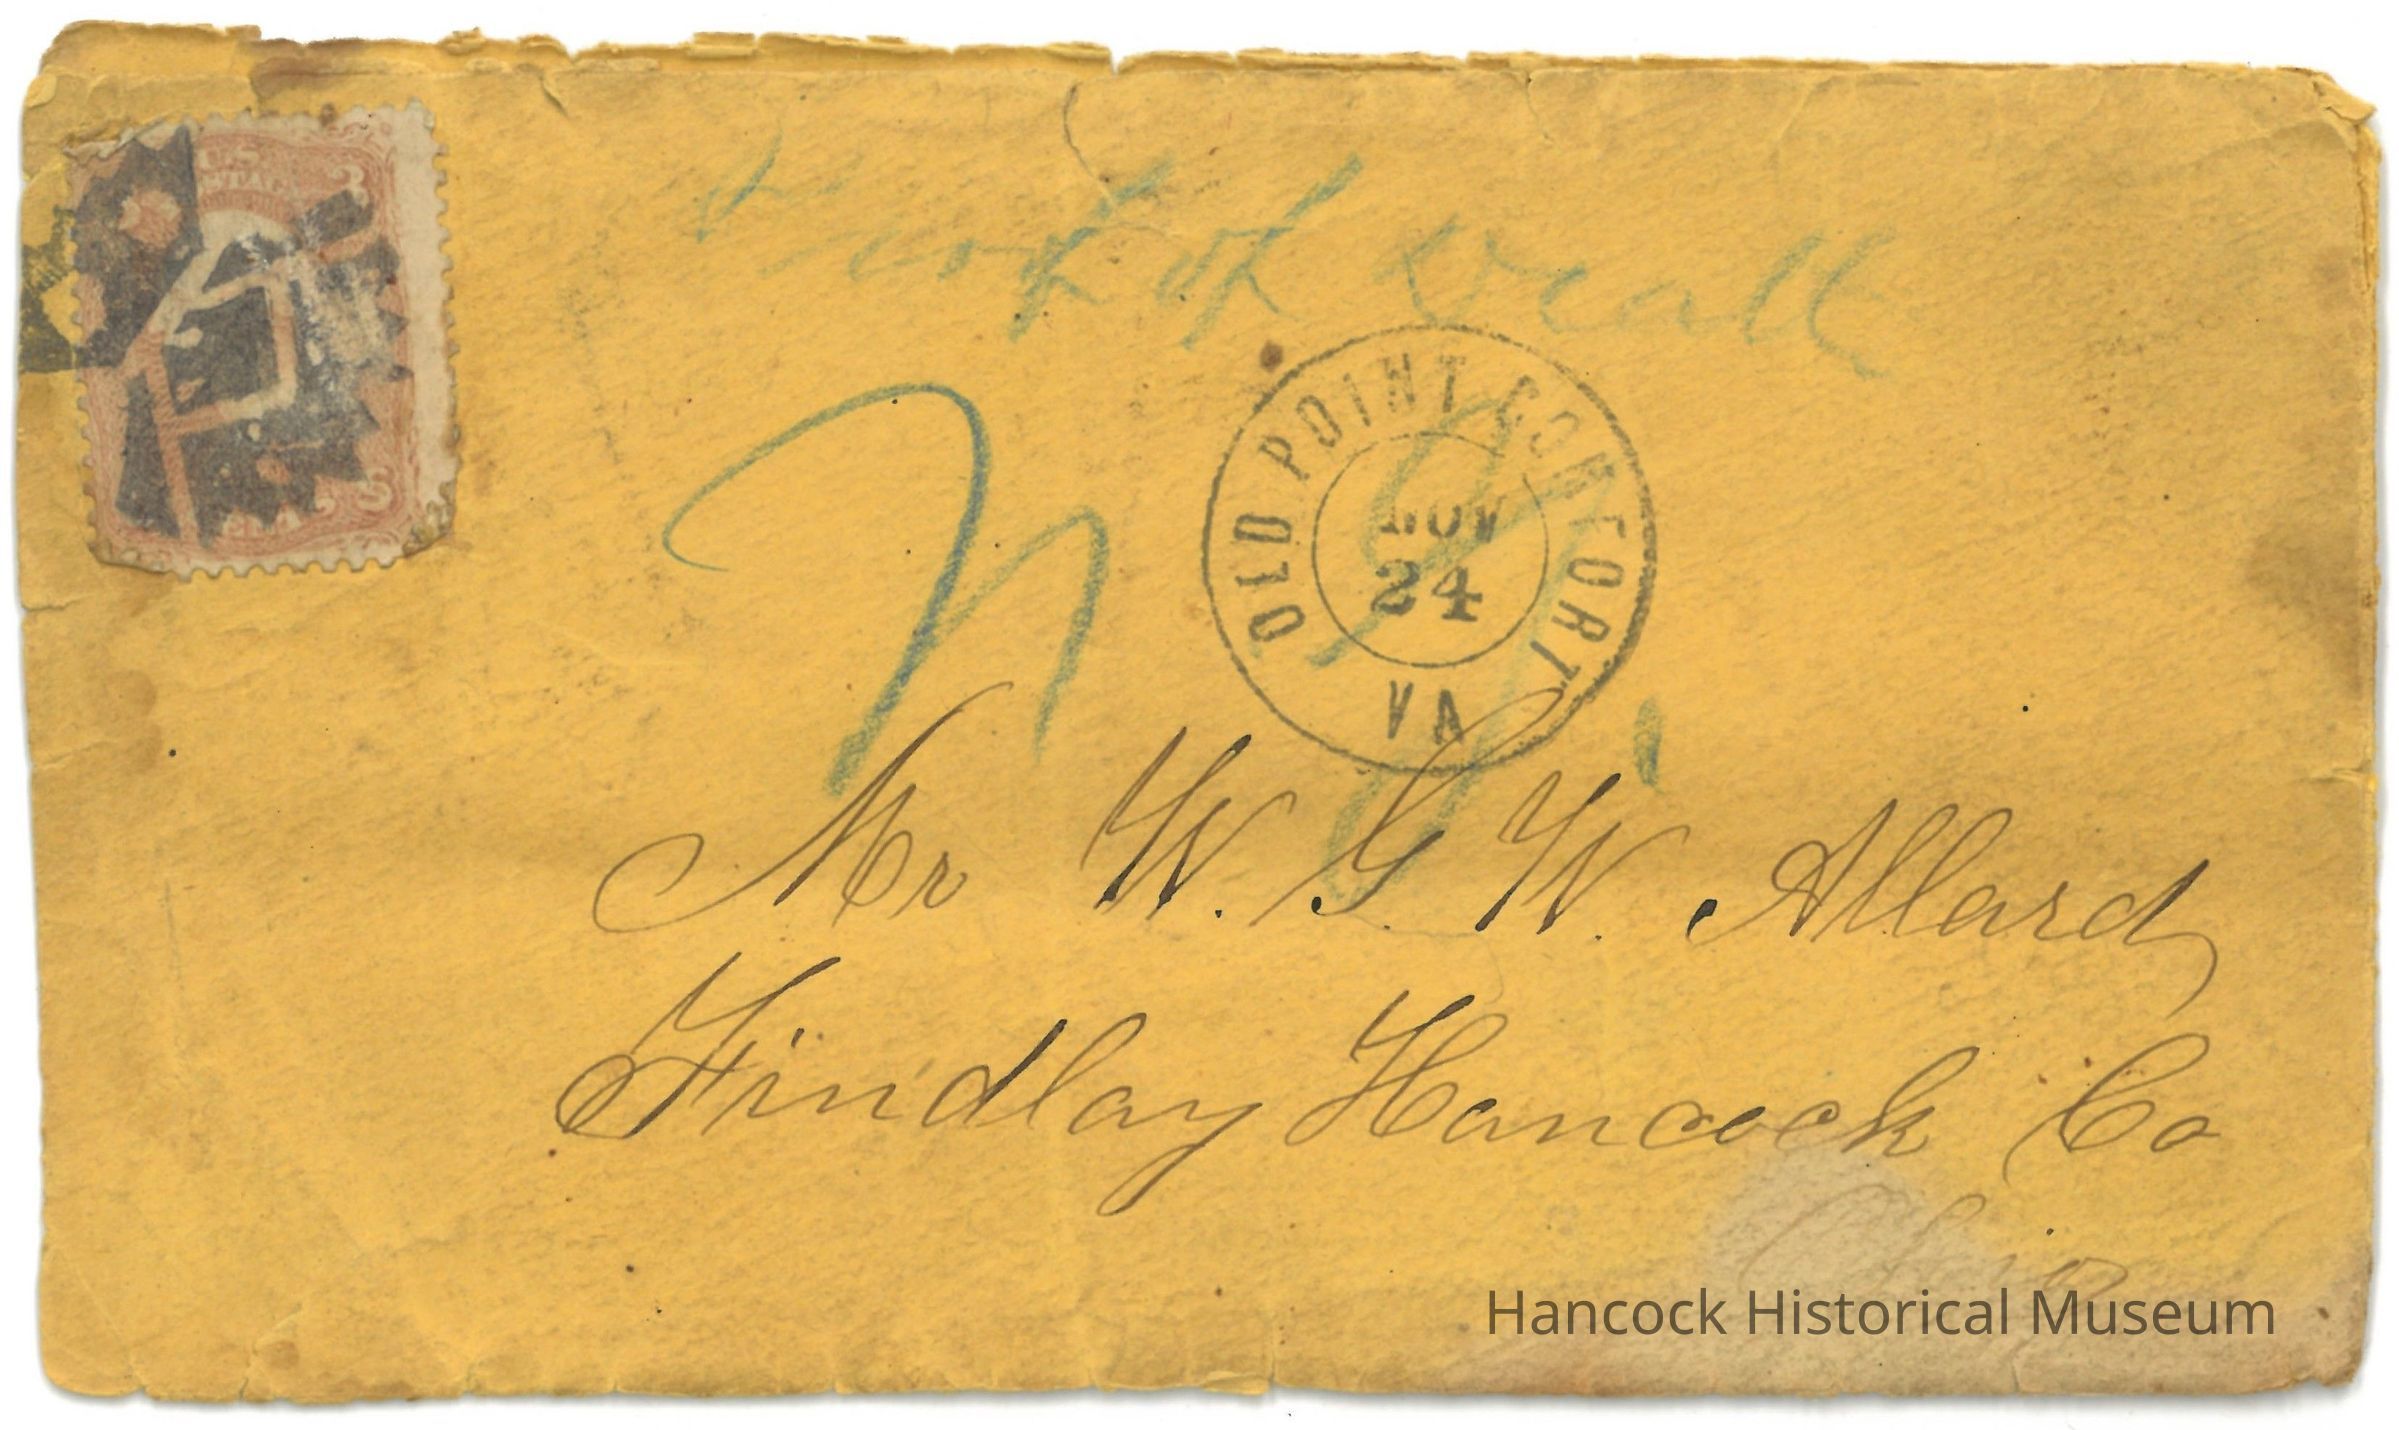 U.S.
POSTAGE
3
of
OLD POINT COMFORT
NOV
24
VA
Mr W. G. W. Allard
Findlay Hancock Co
Ohio
Hancock Historical Museum